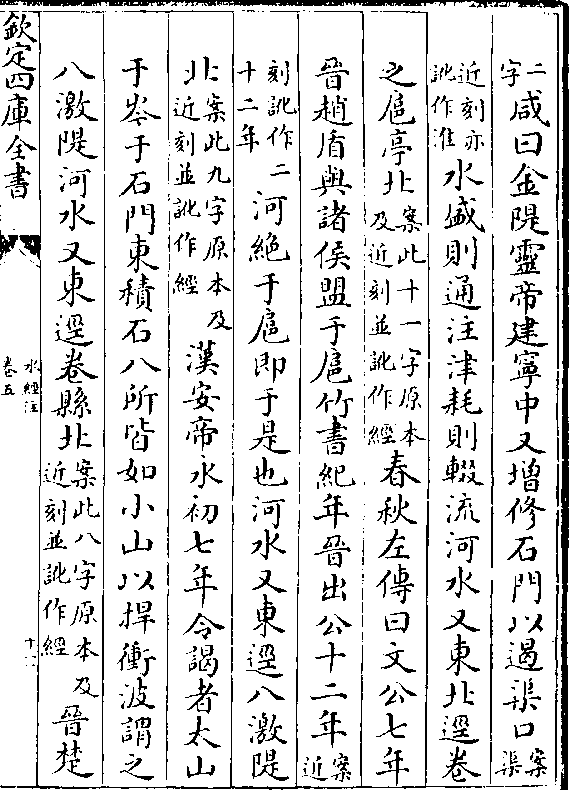 二字咸曰金隄靈帝建寧中又增修石門以遏渠口案渠
近刻亦訛作淮水盛則通注津耗則輟流河水又東北逕卷
之扈亭北案此十一字原本及近刻並訛作經春秋左傳曰文公七年
晉趙盾與諸侯盟于扈竹書紀年晉出公十二年案近
刻訛作二十二年河絶于扈即于是也河水又東逕八激隄
北案此九字原本及近刻並訛作經漢安帝永初七年令謁者太山
于岑于石門東積石八所皆如小山以捍衝波謂之
八激隄河水又東逕卷縣北案此八字原本及近刻並訛作經晉楚
欽定四庫全書
水經注
卷五
十一